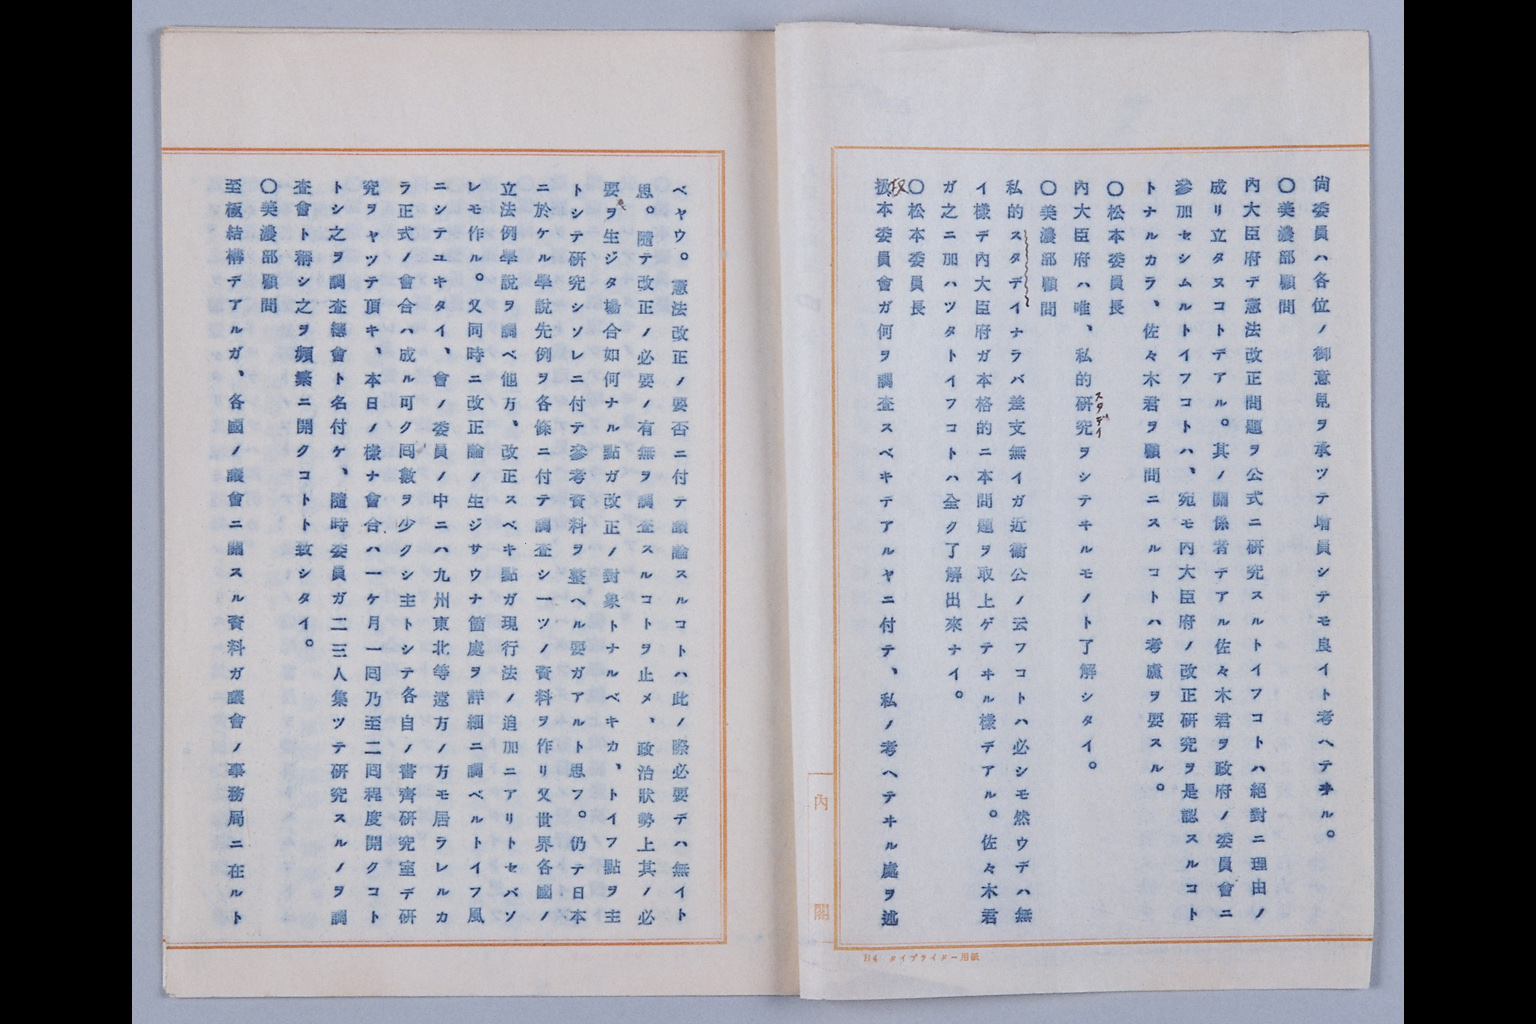 尙委員ハ各位ノ御意見ヲ承ツテ增員シテモ良イト考ヘテヰル。
〇美濃部顧問
內大臣府デ憲法改正問題ヲ公式ニ硏究スルトイフコトハ絕對ニ理由ノ
成リ立タヌコトデアル。其ノ關係者デアル佐々木君ヲ政府ノ委員會ニ
參加セシムルトイフコトハ、宛モ內大臣府ノ改正硏究ヲ是認スルコト
トナルカラ、佐々木君ヲ顧問ニスルコトハ考慮ヲ要スル。
〇松本委員長
內大臣府ハ唯、私的硏究ヲシテヰルモノト了解シタイ。
スタデイ
〇美濃部顧問
私的スタデイナラバ差支無イガ近衞公ノ云フコトハ必シモ然ウデハ無
イ樣デ內大臣府ガ本格的ニ本問題ヲ取上ゲテヰル樣デアル。佐々木君
ガ之ニ加ハツタトイフコトハ全ク了解出來ナイ。
〇松本委員長
扨本委員會ガ何ヲ調査スベキデアルヤニ付テ、私ノ考ヘテヰル處ヲ述
內閣
B4 タイプライター用紙
ベヤウ。憲法改正ノ要否ニ付テ議論スルコトハ此ノ際必要デハ無イト
思。隨テ改正ノ必要ノ有無ヲ調査スルコトヲ止メ、政治狀勢上其ノ必
要ヲ生ジタ場合如何ナル點ガ改正ノ對象トナルベキカ、トイフ點ヲ主
トシテ硏究シソレニ付テ參考資料ヲ整ヘル要ガアルト思フ。仍テ日本
ニ於ケル學說先例ヲ各條ニ付テ調査シ一ツノ資料ヲ作リ又世界各國ノ
立法例學說ヲ調ベ他方、改正スベキ點ガ現行法ノ追加ニアリトセバソ
レモ作ル。又同時ニ改正論ノ生ジサウナ箇處ヲ詳細ニ調ベルトイフ風
ニシテユキタイ、會ノ委員ノ中ニハ九州東北等遠方ノ方モ居ラレルカ
ラ正式ノ會合ハ成ル可ク囘數ヲ少クシ主トシテ各自ノ書齊硏究室デ硏
究ヲヤツテ頂キ、本日ノ樣ナ會合ハ一ケ月一囘乃至二囘程度開クコト
トシ之ヲ調査總會ト名付ケ、隨時委員ガ二三人集ツテ硏究スルノヲ調
査會ト稱シ之ヲ頻繁ニ開クコトト致シタイ。
〇美濃部顧問
至極結構デアルガ、各國ノ議會ニ關スル資料ガ議會ノ事務局ニ在ルト